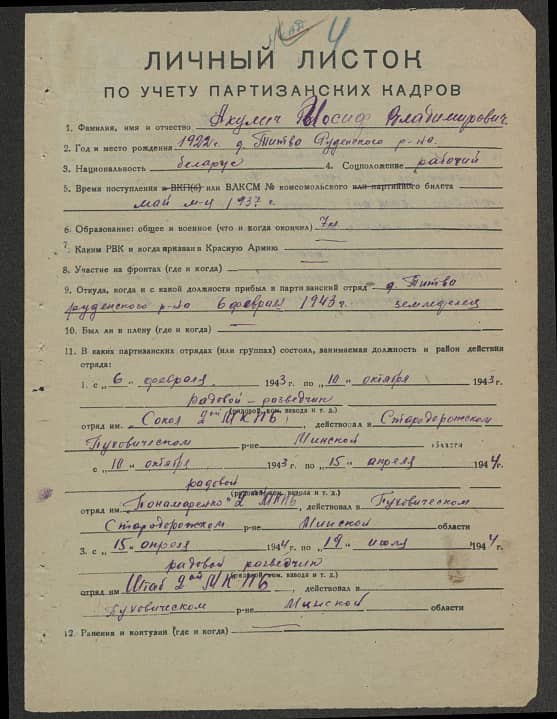 4
ЛИЧНЫЙ ЛИСТОК
ПО УЧЕТУ ПАРТИЗАНСКИХ КАДРОВ
1. Фамилия, имя и отчество Акулич Иосиф Владимирович.
2. Год и место рождения 1922 г. д. Титва Руденского р-на.
3. Национальность беларус 4. Соцположение рабочий
5. Время поступления в ВКП(б) или ВЛКСМ № комсомольского или партийного билета
май м-ц 1937 г.
6. Образование: общее и военное (что и когда окончил) 7 кл
7. Каким РВК и когда призван в Красную Армию
8. Участие на фронтах (где и когда)
9. Откуда, когда и с какой должности прибыл в партизанский отряд д. Титва
руденского р-на 6 февраля 1943 г. земледелец
10. Был ли в плену (где и когда)
11. В каких партизанских отрядах (или группах) состоял, занимаемая должность и район действия
отряда:
1. с „6 „ февраля 1943 г. по „10 „ октября 1943 г.
радовой – розведчик
(рядовой, ком. взвода и т. д.)
отряд им. Сокол 2ой МКПБ, действовал в Стародорожском
Пуховическом р-не Минской области
с „10 „ октября 1943 г. по „15„ апреля 1944 г.
радовой
(рядовой, ком. взвода и т. д.)
отряд им. Понамаренко 2 МКПБ, действовал в Пуховическом
Стародорожском р-не Минской области
3. с „15„ апреля 1944 г. по „19„ июля 1944 г.
радовой розведчик
(рядовой, ком. взвода и т. д.)
отряд им. Штаб 2ой МКПБ действовал в
Пуховическом р-не Минской области
12. Ранения и контузии (где и когда)